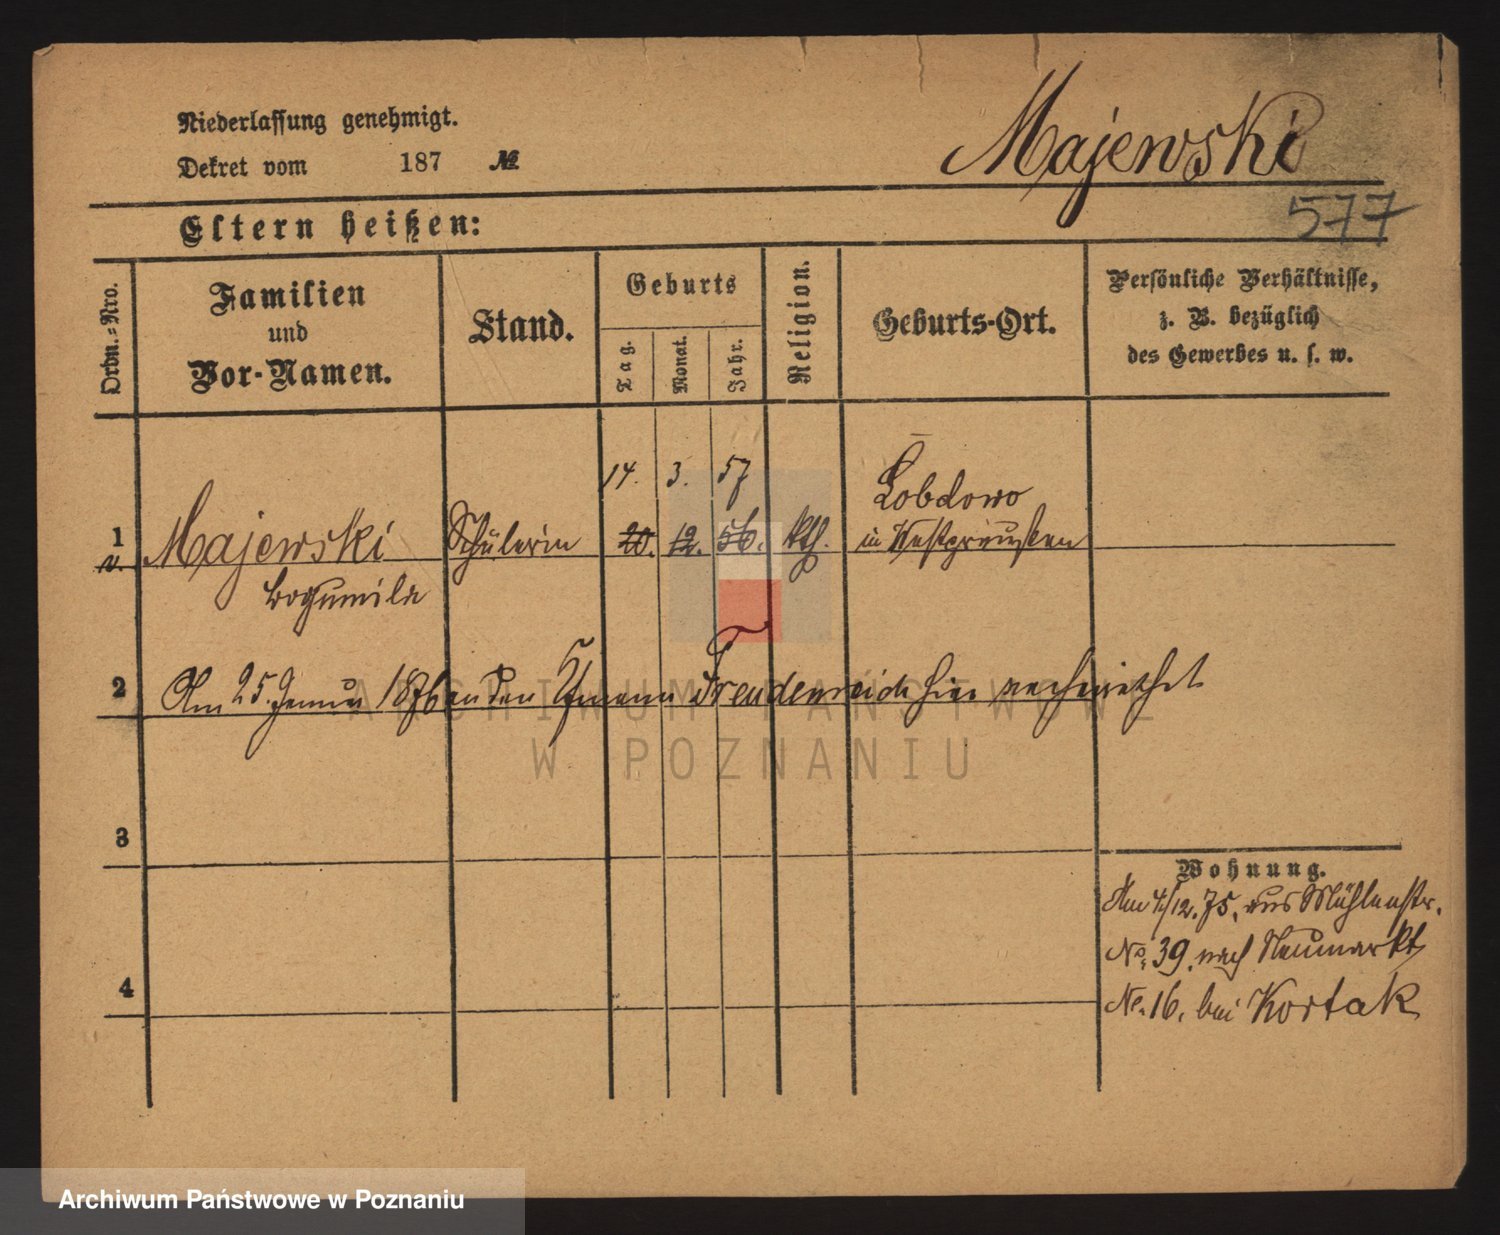 Niederlassung genehmigt.
Dekret vom 187 №
Majewski
577
Eltern heißen:
Ordn.-Nro.
Familien
und
Vor-Namen.
Stand.
Geburts
Tag.
Monat.
Jahr.
Religion.
Geburts-Ort.
Persönliche Verhältnisse,
z. B. bezüglich
des Gewerbes u. s. w.
14. 3. 57
Lobdowo
1 Majewski Schülerin 20. 12. 56. kth. in Westpreußen
v.
Bogumila
2 Am 25. Januar 1876 an den Freudenreich hier verheirathet
3
Wohnung.
Am 4/12. 75. aus Mühlenstr.
No. 39. nach Neumarkt
4 No. 16. bei Kortak
ARCHIWUM PAŃSTWOWE
W POZNANIU
Archiwum Państwowe w Poznaniu